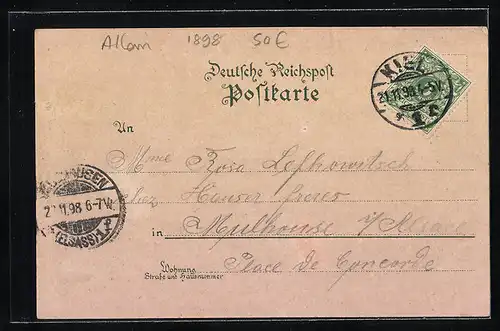 1898 50€
Deutsche Reichspost
Postkarte
KIEL
21.11.98.4-5N.
1
An
Mme Rosa Lefkowitsch
chez Hauser frères
in Mulhouse i/Alsace
Wohnung
Straße und Hausnummer
Place de Concorde
HAUSEN
11.98 6-7V.
(ELSASS)